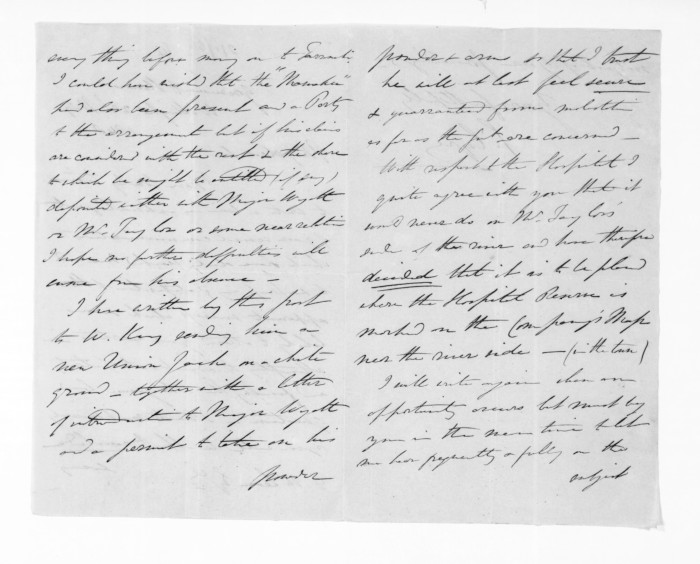 everything before moving on to Taranaki
I could have wished that the "Mamaku"
had also been present and a Party
to the arrangement but if his claims
are considered with the rest & the share
to which he might be entitled (if any)
deposited either with Major Wyatt
or Mr Taylor or some near relation
I hope no further difficulties will
ensue from his absence -
I have written by this post
to W. King sending him a
new Union Jack on a white
ground - together with a letter
of introduction to Major Wyatt
and a permit to take on his
powder
powder & arms so that I trust
he will at last feel secure
& guaranteed from molesta
as far as the are concerned -
With respect to the Hospital I
quite agree with you that it
would never do on Mr Taylor's
side of the river and have therefore
decided that it is to be placed
where the Hospital Reserve is
marked on the Company's Map
near the river side - (in the town)
I will write again when an
opportunity occurs but must beg
you in the mean time to let
me hear frequently & fully on the
subject